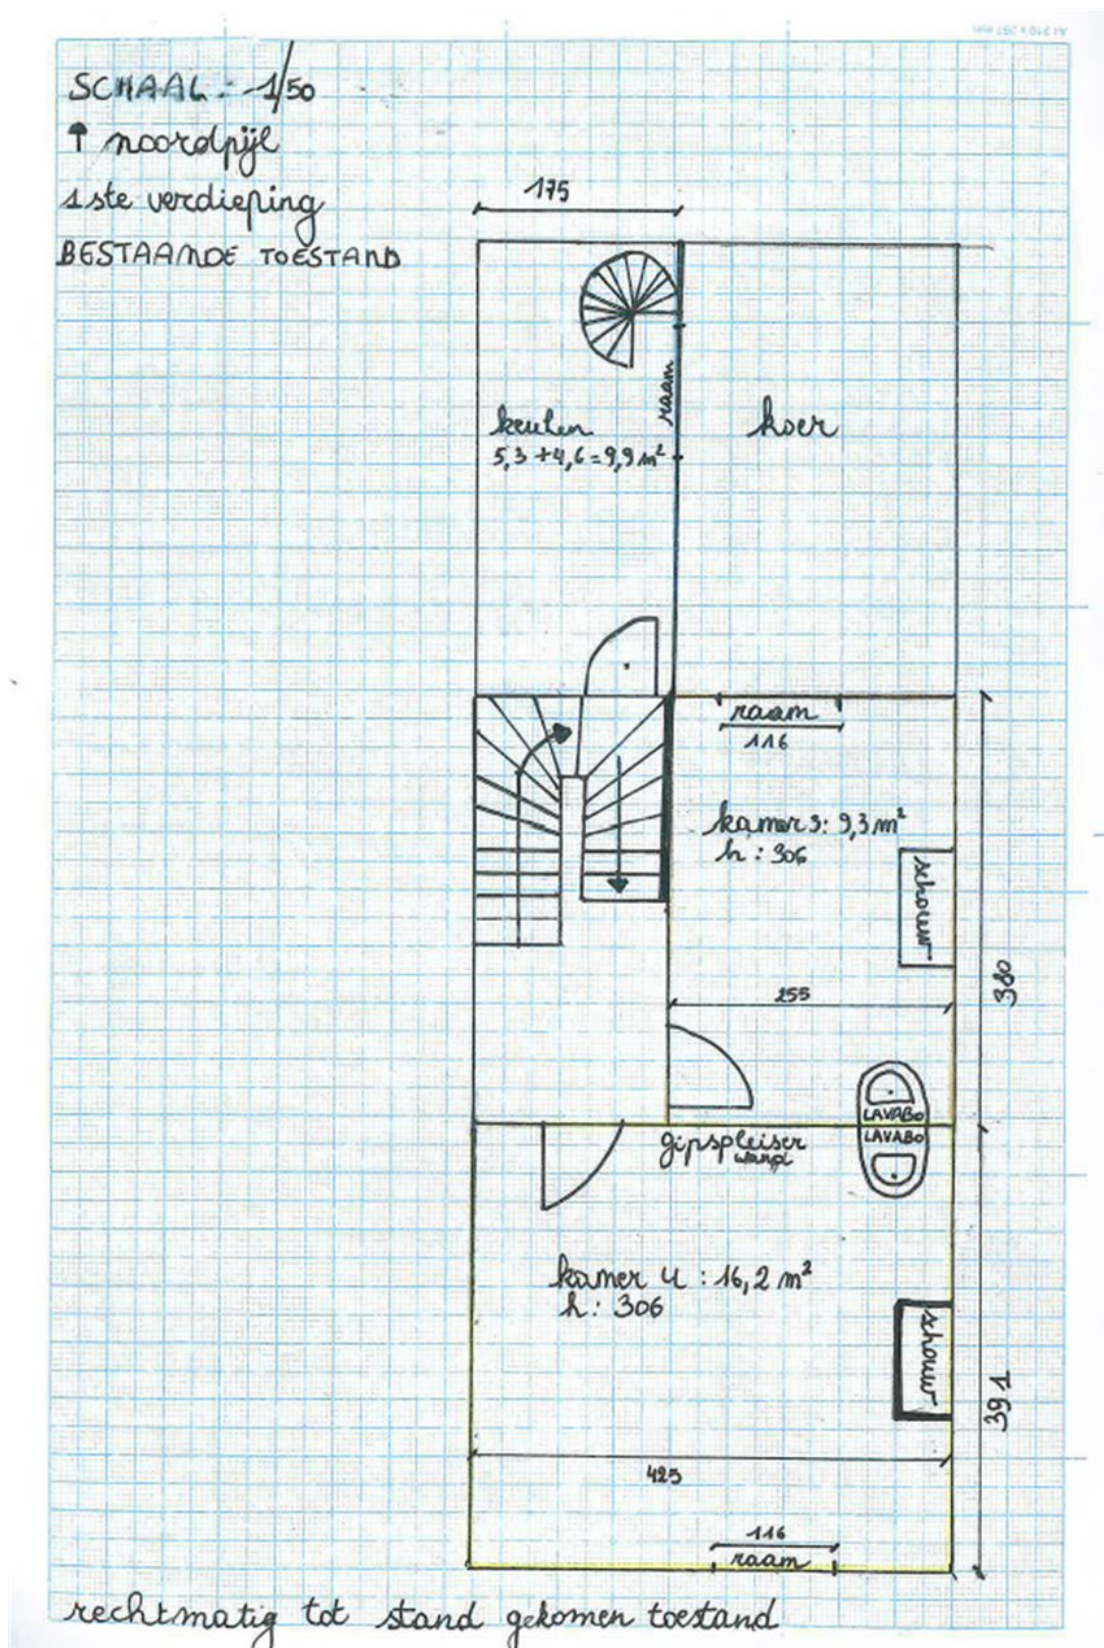 SCHAAL: 1/50
noordpijl
1ste verdieping
BESTAANDE TOESTAND
175
raam
keuken
5,3 + 4,6 = 9,9 m²
koer
raam
116
kamer 3: 9,3 m²
h: 306
schouw
380
255
LAVABO
LAVABO
gipspleister
wand
kamer 4: 16,2 m²
h: 306
schouw
391
425
116
raam
rechtmatig tot stand gekomen toestand